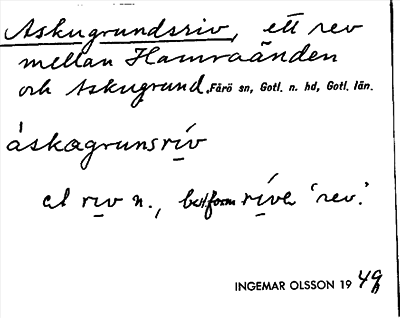 Askugrundsriv, ett rev
mellan Hamraänden
och Askugrund. Fårö sn, Gotl. n. hd, Gotl. län.
áskagrunsrív
al riv n., best. form ríve 'rev.'
INGEMAR OLSSON 19 49